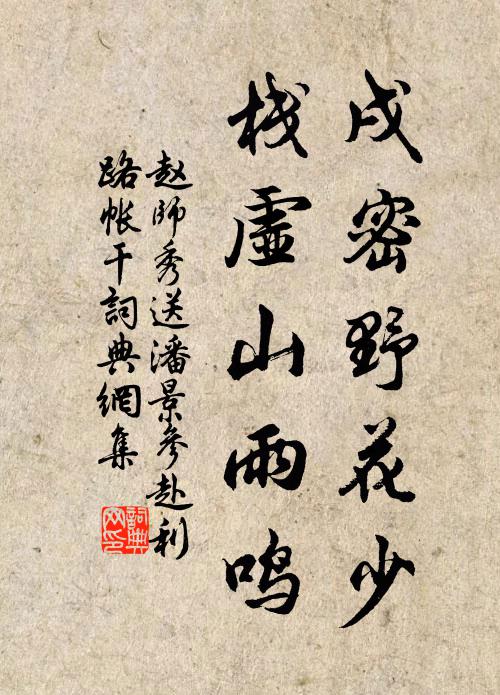 戍密野花少
栈虚山雨鸣
赵師秀送潘景参赴利
路帐干詞典網集
詞典
网印